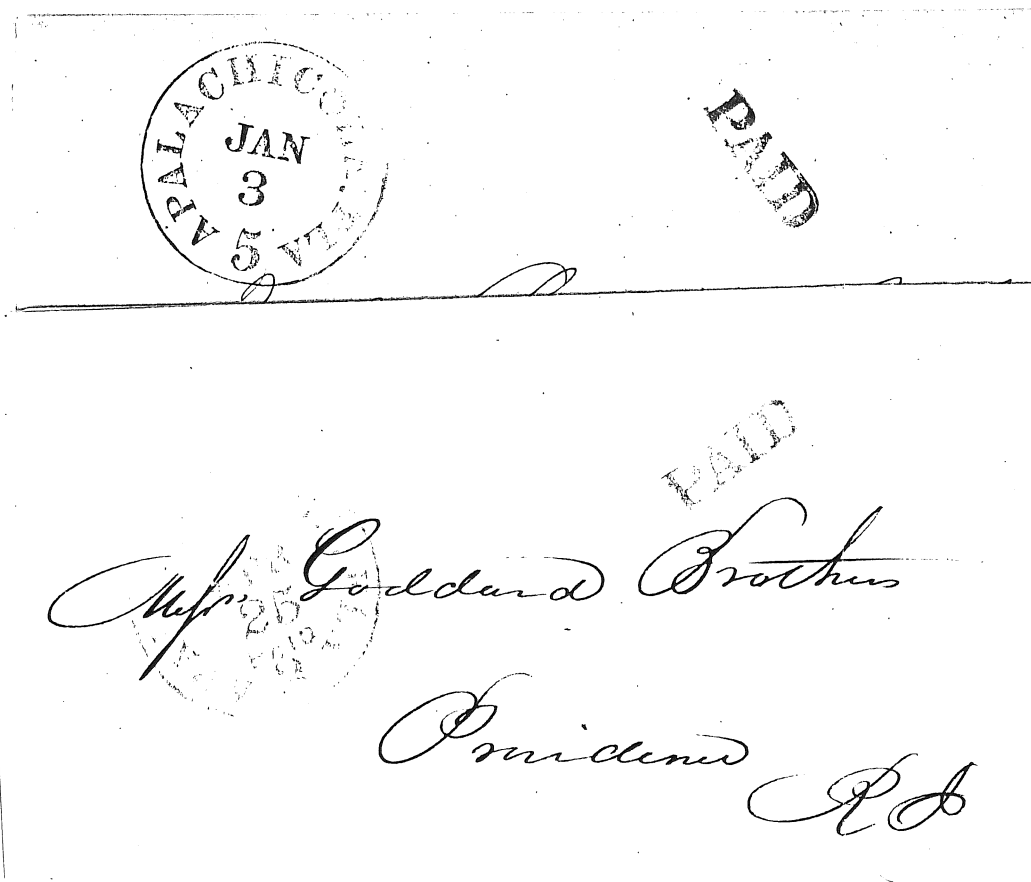 APALACHICOLA. FLA
JAN
3
5
PAID
PAID
25
Messrs. Goddard Brothers
Providence
R I